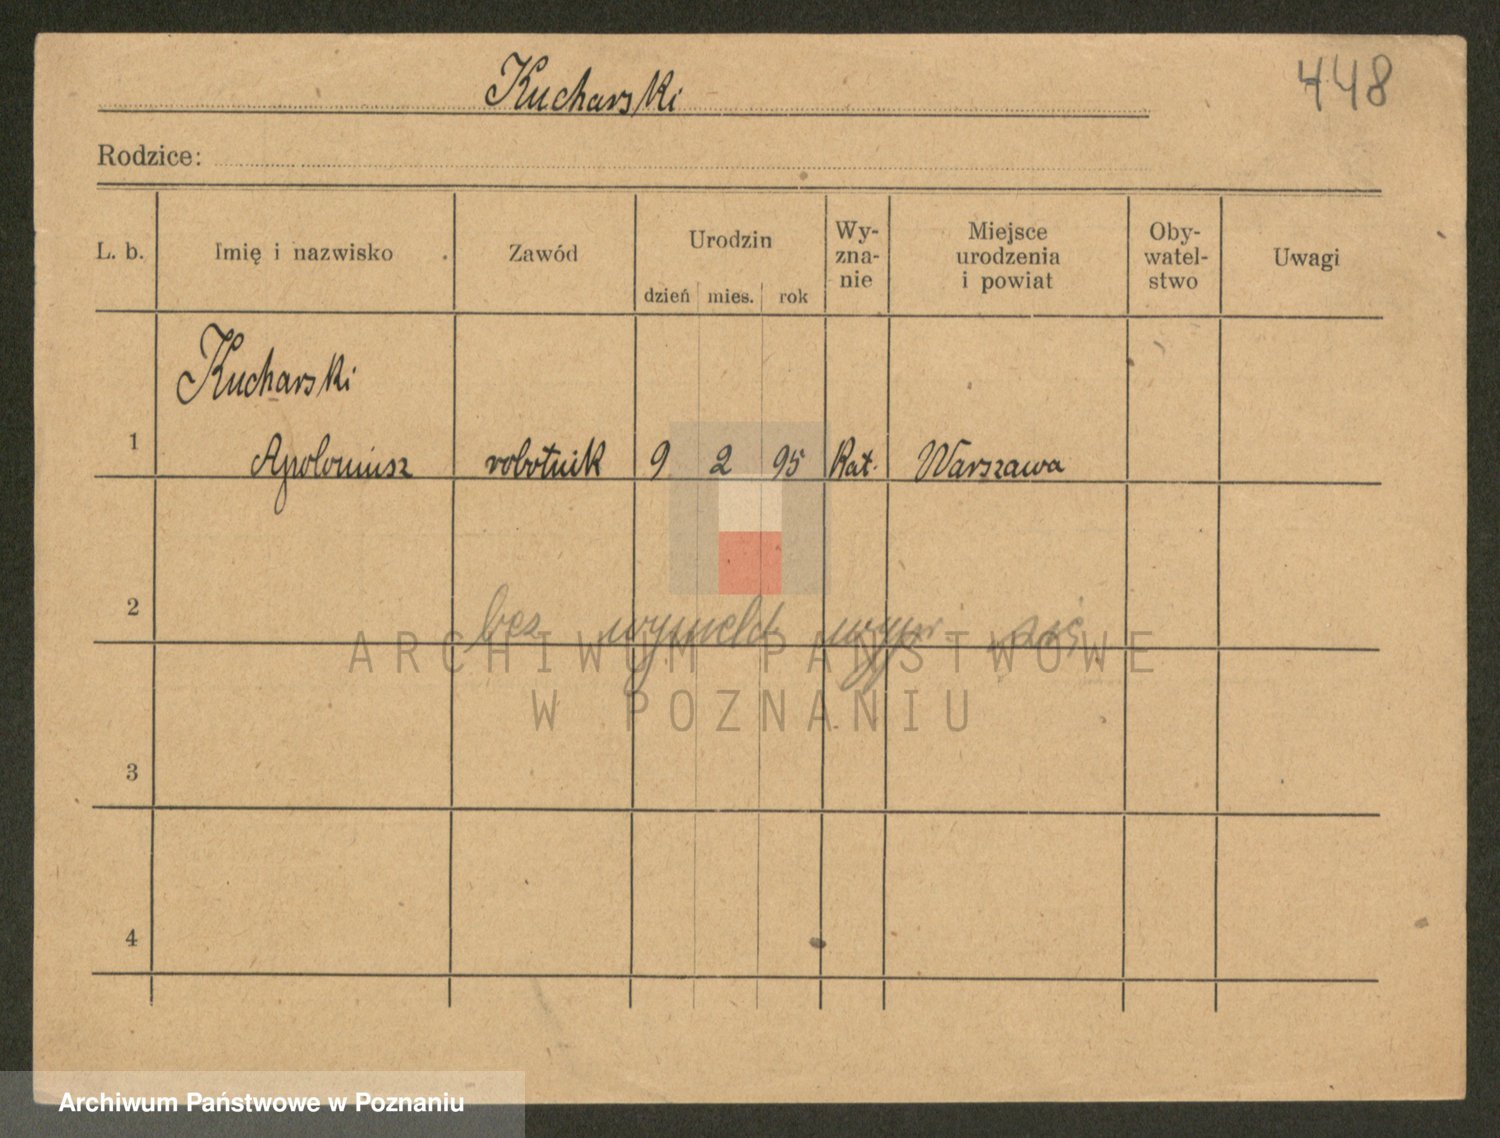 Kucharski
448
Rodzice:
L. b. Imię i nazwisko Zawód Urodzin dzień mies. rok Wy-zna-nie Miejsce urodzenia i powiat Oby-watel-stwo Uwagi
Kucharski
1 Apoloniusz robotnik 9 2 95 Kat. Warszawa
2 bez wymeld. wypr.
ARCHIWUM PAŃSTWOWE
W POZNANIU
3
4
Archiwum Państwowe w Poznaniu